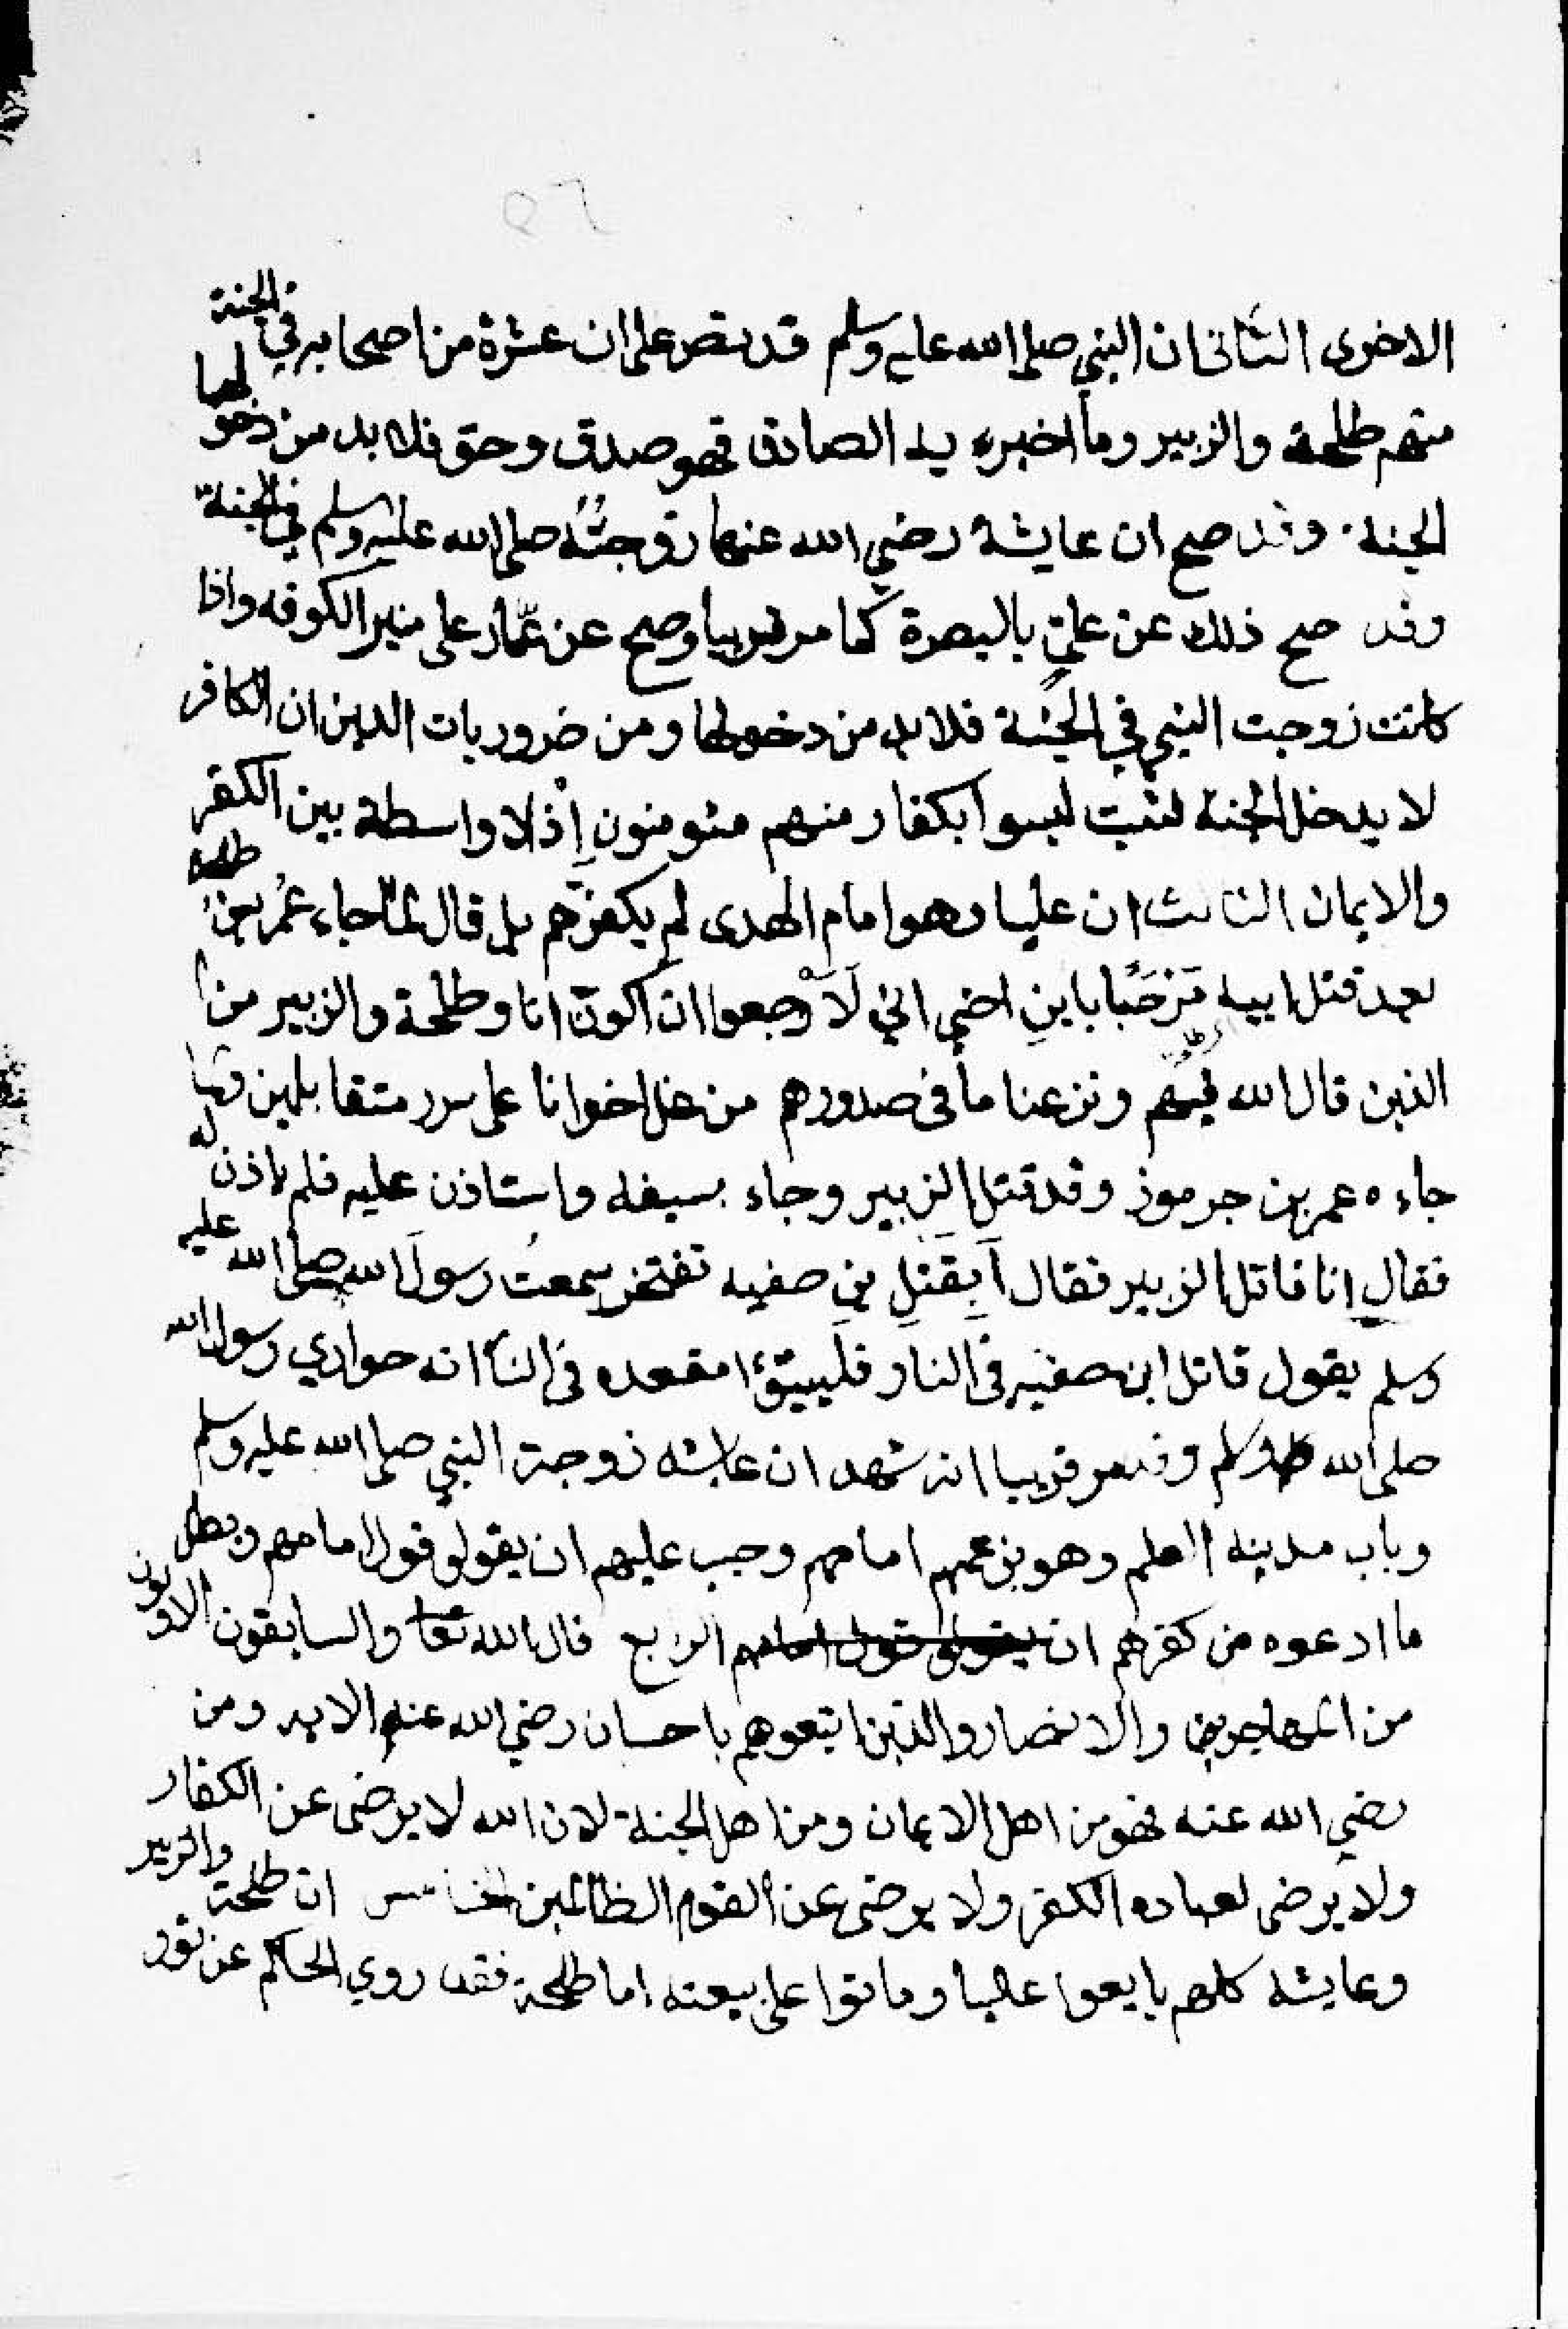 ٥٦
الاخرى الثانى ان النبي صلى الله عليه وسلم قد نص على ان عشرة من اصحابه في الجنة
منهم طلحة والزبير وما اخبر به الصادق فهو صدق وحق فلا بد من دخولهما
الجنة وقد صح ان عايشة رضي الله عنها زوجتُهُ صلى الله عليه وسلم في الجنة
وقد صح ذلك عن عليٍّ بالبصرة كما مر قريبا وصح عن عمّار على منبر الكوفه واذا
كانت زوجت النبي في الجنة فلا بد من دخولها ومن ضروريات الدين ان الكافر
لا يدخل الجنة فثبت ليسوا بكفار منهم مئومنون إذْ لا واسطة بين الكفر
والايمان الثالث ان عليا وهو امام الهدى لم يكفرهم بل قال لمّا جاء عمْر بن طلحة
بعد قتل ابيه مَرْحَبًا باينِ اخي اني لَأَرجوا ان اكون انا وطلحة والزبير من
الذين قال الله فيهم ونزعنا ما فى صدورهم من غل اخوانا على سرر متقابلين ولما
جاءه عمر بن جرموز وقد قتل الزبير وجاء بسيفه واستاذن عليه فلم ياذن له
فقال انا قاتل الزبير فقال أَبِقَتْلِ بنِ صفيه تفتخر سمعتُ رسولَ الله صلى الله عليه
وسلم يقول قاتل ابن صفيه فى النار فليتبوّء مقعده فى النار انه حواري رسول الله
صلى الله عليه وسلم وقد مر قريبا انه شهد ان عايشه زوجة النبي صلى الله عليه وسلم
وباب مدينه العلم وهو بن عمهم امامهم وجب عليهم ان يقولو قول امامهم وبطل
ما ادعوه من كفرهم ان يقولو قول امامهم الرابع قال الله تعا والسابقون الاولون
من المهاجرين والانصار والذين اتبعوهم باحسان رضي الله عنهم الايه ومن
رضي الله عنه فهو من اهل الايمان ومن اهل الجنة لان الله لا يرضى عن الكفار
ولا يرضى لعباده الكفر ولا يرضى عن القوم الظالمين الخامس ان طلحة والزبير
وعايشه كلهم بايعوا عليا وماتوا على بيعته اما طلحة فقد روي الحاكم عن ثور